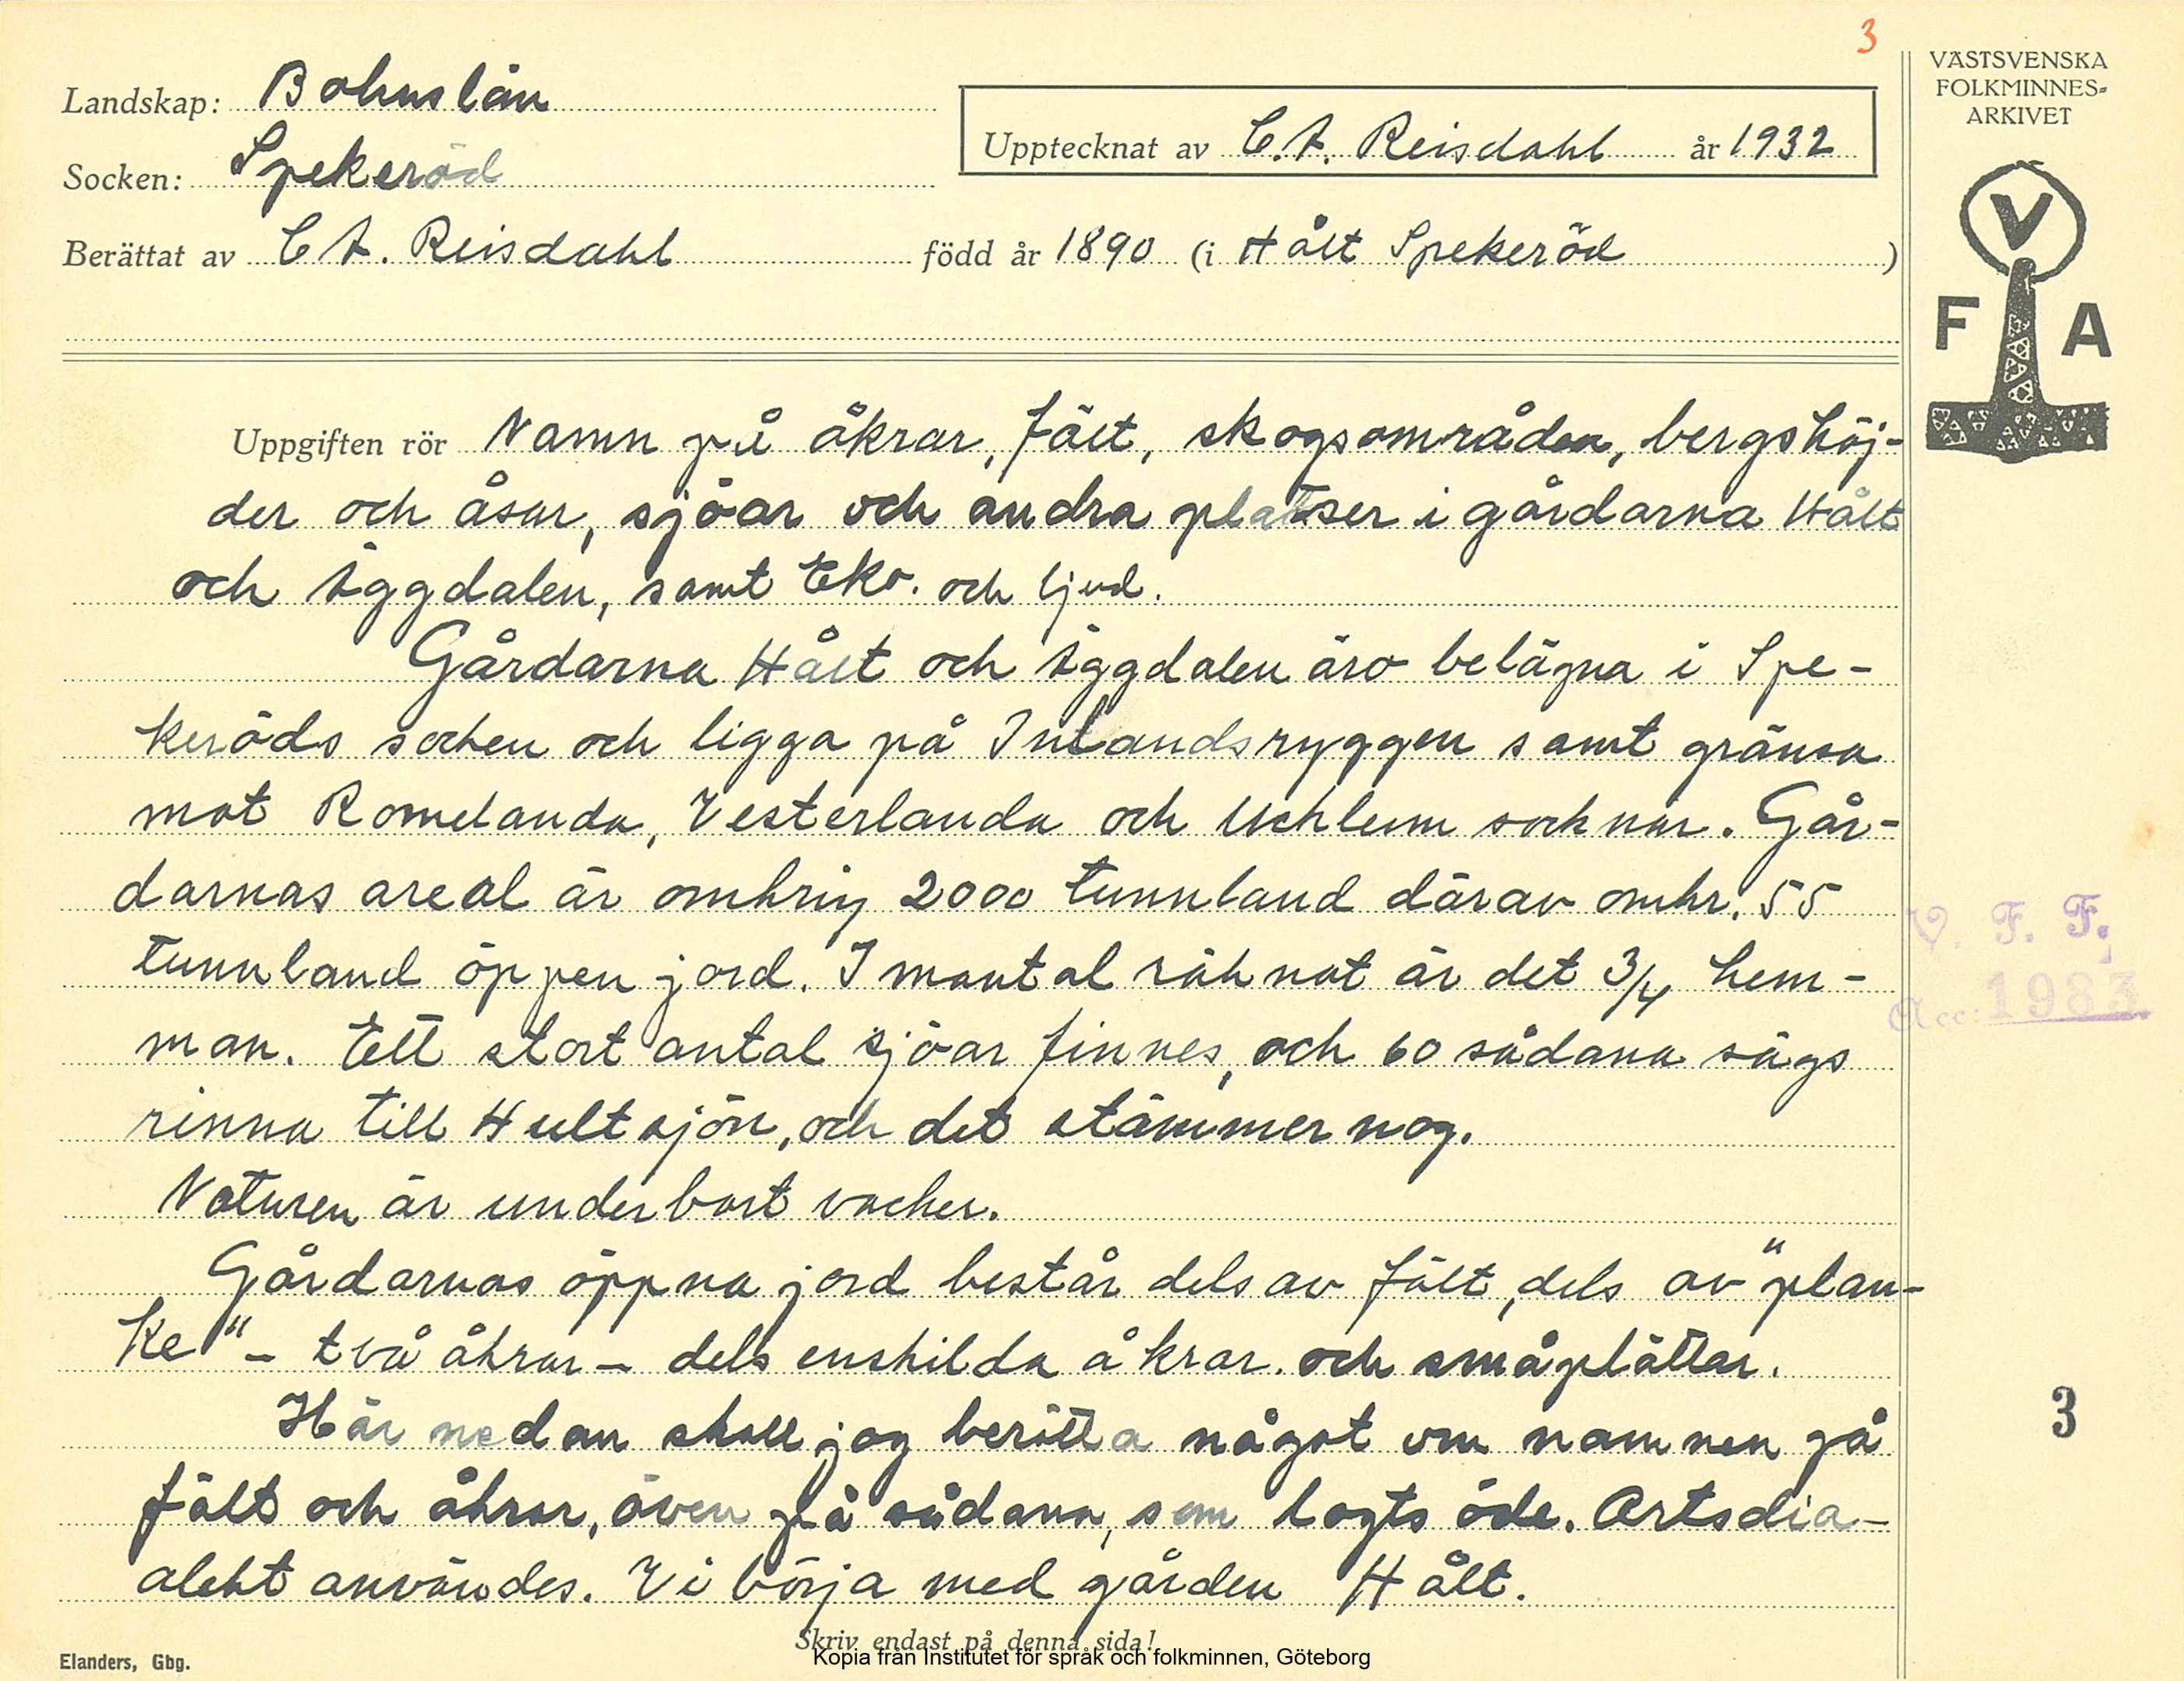 3
VÄSTSVENSKA
FOLKMINNES-
ARKIVET
Landskap: Bohuslän
Upptecknat av C.A. Reisdahl år 1932
Socken: Spekeröd
Berättat av C A. Reisdahl född år 1890 (i Hålt Spekeröd)
V
F A
Uppgiften rör Namn på åkrar, fält, skogsområden, bergshöj-
der och åsar, sjöar och andra platser i gårdarna Hålt
och Äggdalen, samt Eko. och ljud.
Gårdarna Hålt och Äggdalen äro belägna i Spe-
keröds socken och ligga på Inlandsryggen samt gränsa
mot Romelanda, Vesterlanda och Ucklum socknar. Går-
darnas areal är omkring 2000 tunnland därav omkr. 55
tunnland öppen jord. I mantal räknat är det 3/4 hem-
man. Ett stort antal sjöar finnes, och 60 sådana sägs
rinna till Hultsjön, och det stämmer nog.
Naturen är underbart vacker.
Gårdarnas öppna jord består dels av fält, dels av "plan-
ke" - två åkrar - dels enskilda åkrar. och småplättar.
Här nedan skall jag berätta något om namnen på
fält och åkrar, även på sådana, som lagts öde. Ortsdia-
alekt användes. Vi börja med gården Hålt.
V. F. F.
Acc: 1983
3
Skriv endast på denna sida!
Elanders, Gbg.
Kopia från Institutet för språk och folkminnen, Göteborg